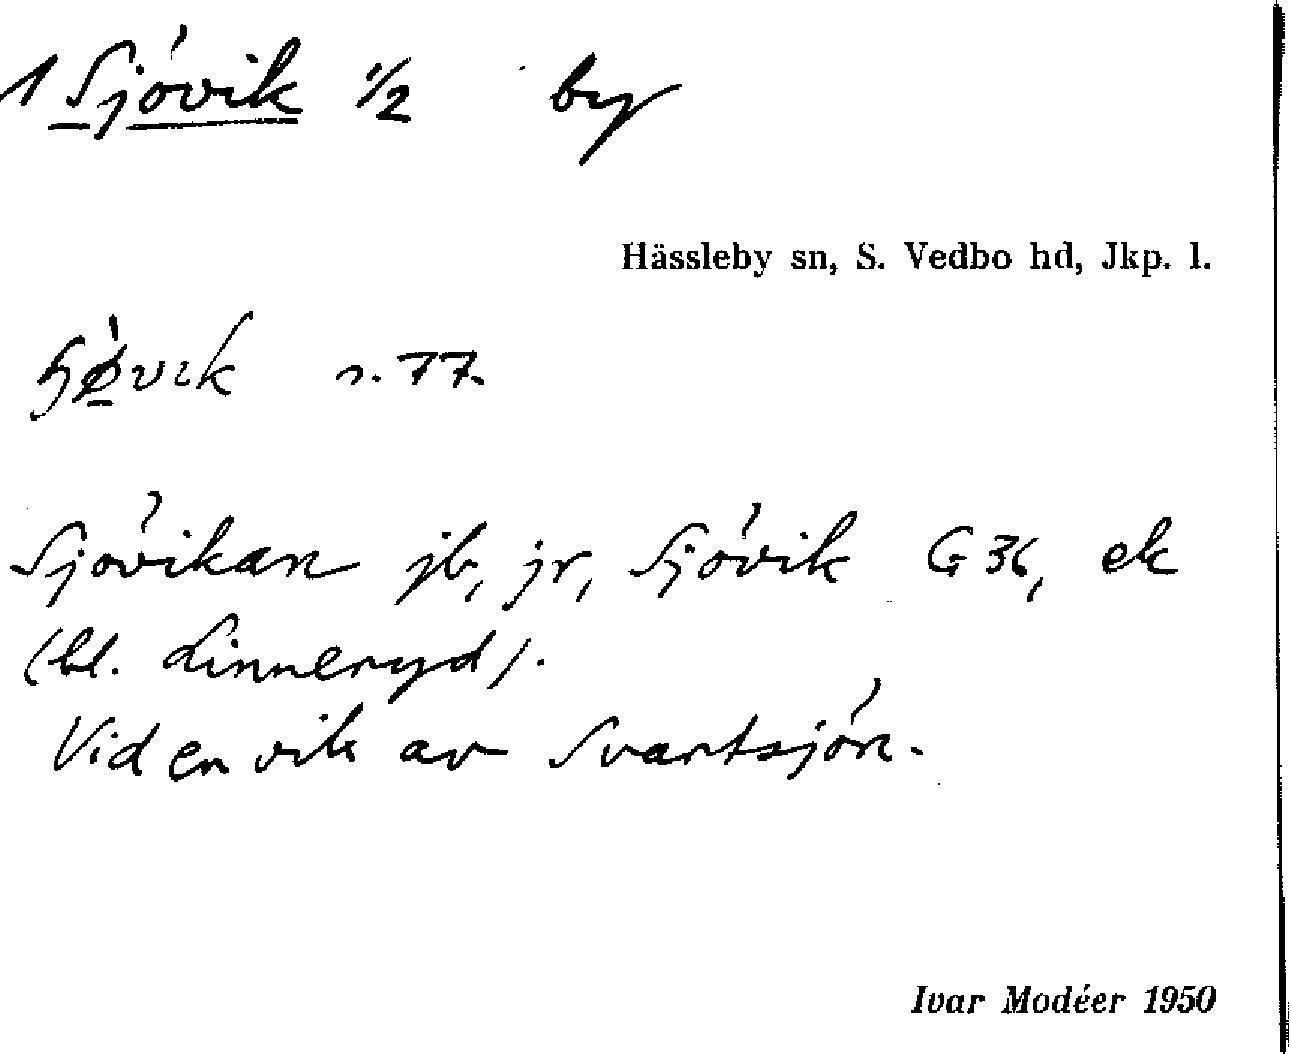 1 Sjövik 1/2 by
Hässleby sn, S. Vedbo hd, Jkp. l.
s. 77.
Sjövikan jb, jr, Sjövik G 36, ek
(bl. Linneryd).
Vid en vik av Svartsjön.
Ivar Modéer 1950